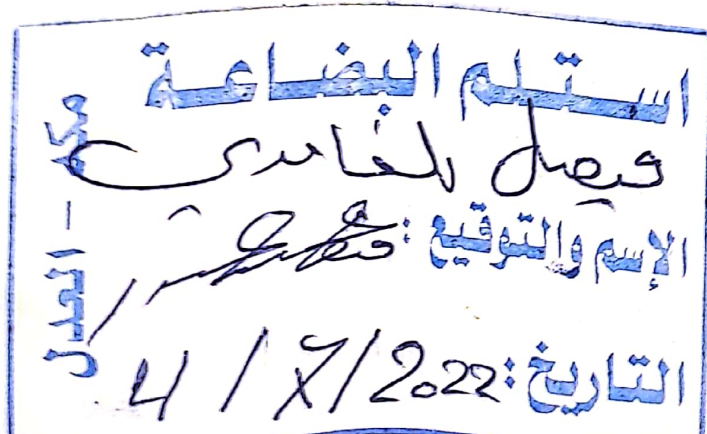 استلم البضاعة
فيصل الغامدي
الإسم والتوقيع:
التاريخ: 4 / 7 / 2022
مكة - العدل